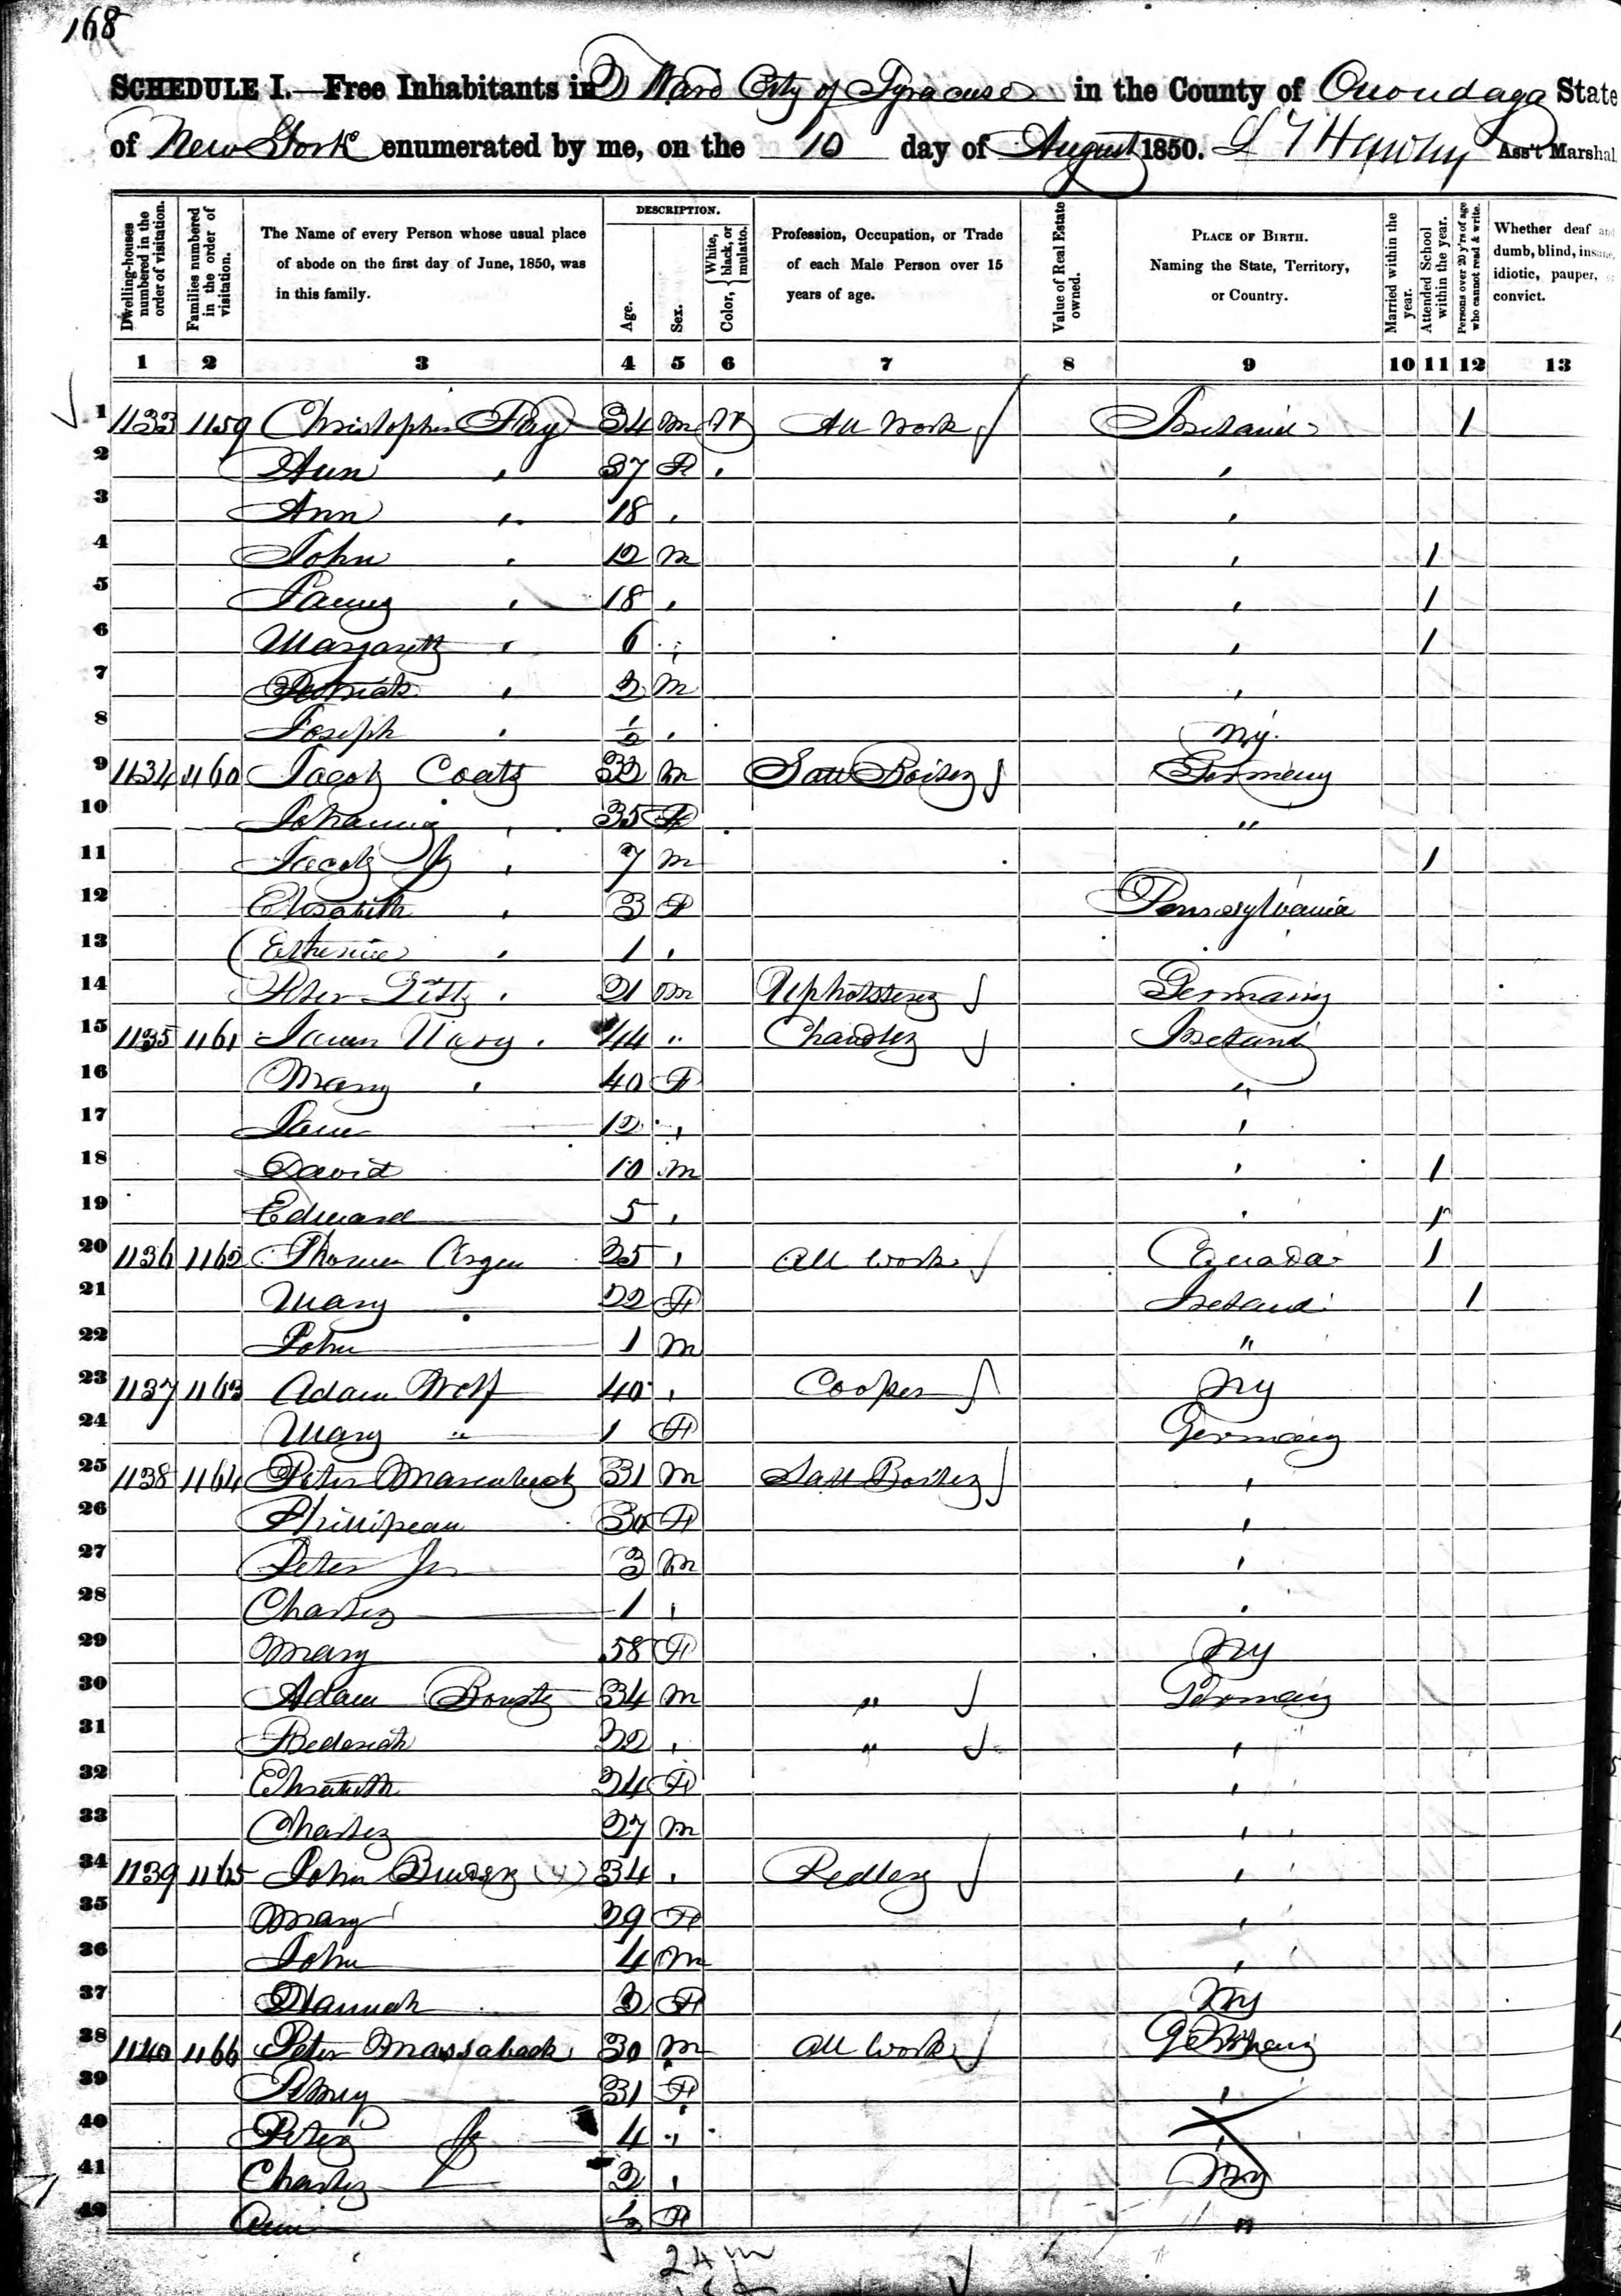 168
SCHEDULE I.—Free Inhabitants in 2 Ward City of Syracuse in the County of Onondaga State
of New York enumerated by me, on the 10 day of August 1850. Ass't Marshal
Dwelling-houses numbered in the order of visitation.
Families numbered in the order of visitation.
The Name of every Person whose usual place of abode on the first day of June, 1850, was in this family.
DESCRIPTION.
Age.
Sex.
Color, { White, black, or mulatto.
Profession, Occupation, or Trade of each Male Person over 15 years of age.
Value of Real Estate owned.
PLACE OF BIRTH. Naming the State, Territory, or Country.
Married within the year.
Attended School within the year.
Persons over 20 y'rs of age who cannot read & write.
Whether deaf and dumb, blind, insane, idiotic, pauper, or convict.
1 2 3 4 5 6 7 8 9 10 11 12 13
1 1133 1159 Christopher 34 M W All Work Ireland 1
2 Ann " 37 F " "
3 Ann " 18 " "
4 John " 12 M " 1
5 " 18 " " 1
6 Margarett " 6 " " 1
7 Patrick " 2 M "
8 Joseph " " NY
9 1134 1160 Jacob Coats 32 M Salt Boiler Germany
10 Johanna " 35 F "
11 Jacob Jr " 7 M 1
12 Elisabeth " 3 F Pennsylvania
13 " 1 " "
14 Peter 21 M Upholsterer Germany
15 1135 1161 James 44 " Chandler Ireland
16 Mary " 40 F "
17 Jane 12 " "
18 David 10 M " 1
19 Edward 5 " " 1
20 1136 1162 Thomas 25 " All Work Canada 1
21 Mary " 22 F Ireland 1
22 John 1 M "
23 1137 1163 Adam Wolf 40 " Cooper NY
24 Mary " 1 F Germany
25 1138 1164 Peter 31 M Salt Boiler "
26 30 F "
27 Peter Jr 3 M "
28 Charles 1 " "
29 Mary 58 F NY
30 Adam 34 M " Germany
31 22 " " "
32 Elisabeth 24 F "
33 Charles 27 M "
34 1139 1165 John 34 " Pedler "
35 Mary 29 F "
36 John 4 M "
37 Hannah 2 F NY
38 1140 1166 Peter Massaback 30 M All Work Germany
39 31 F "
40 Peter Jr 4 " "
41 Charles 2 " NY
42 Ann F "
24 m